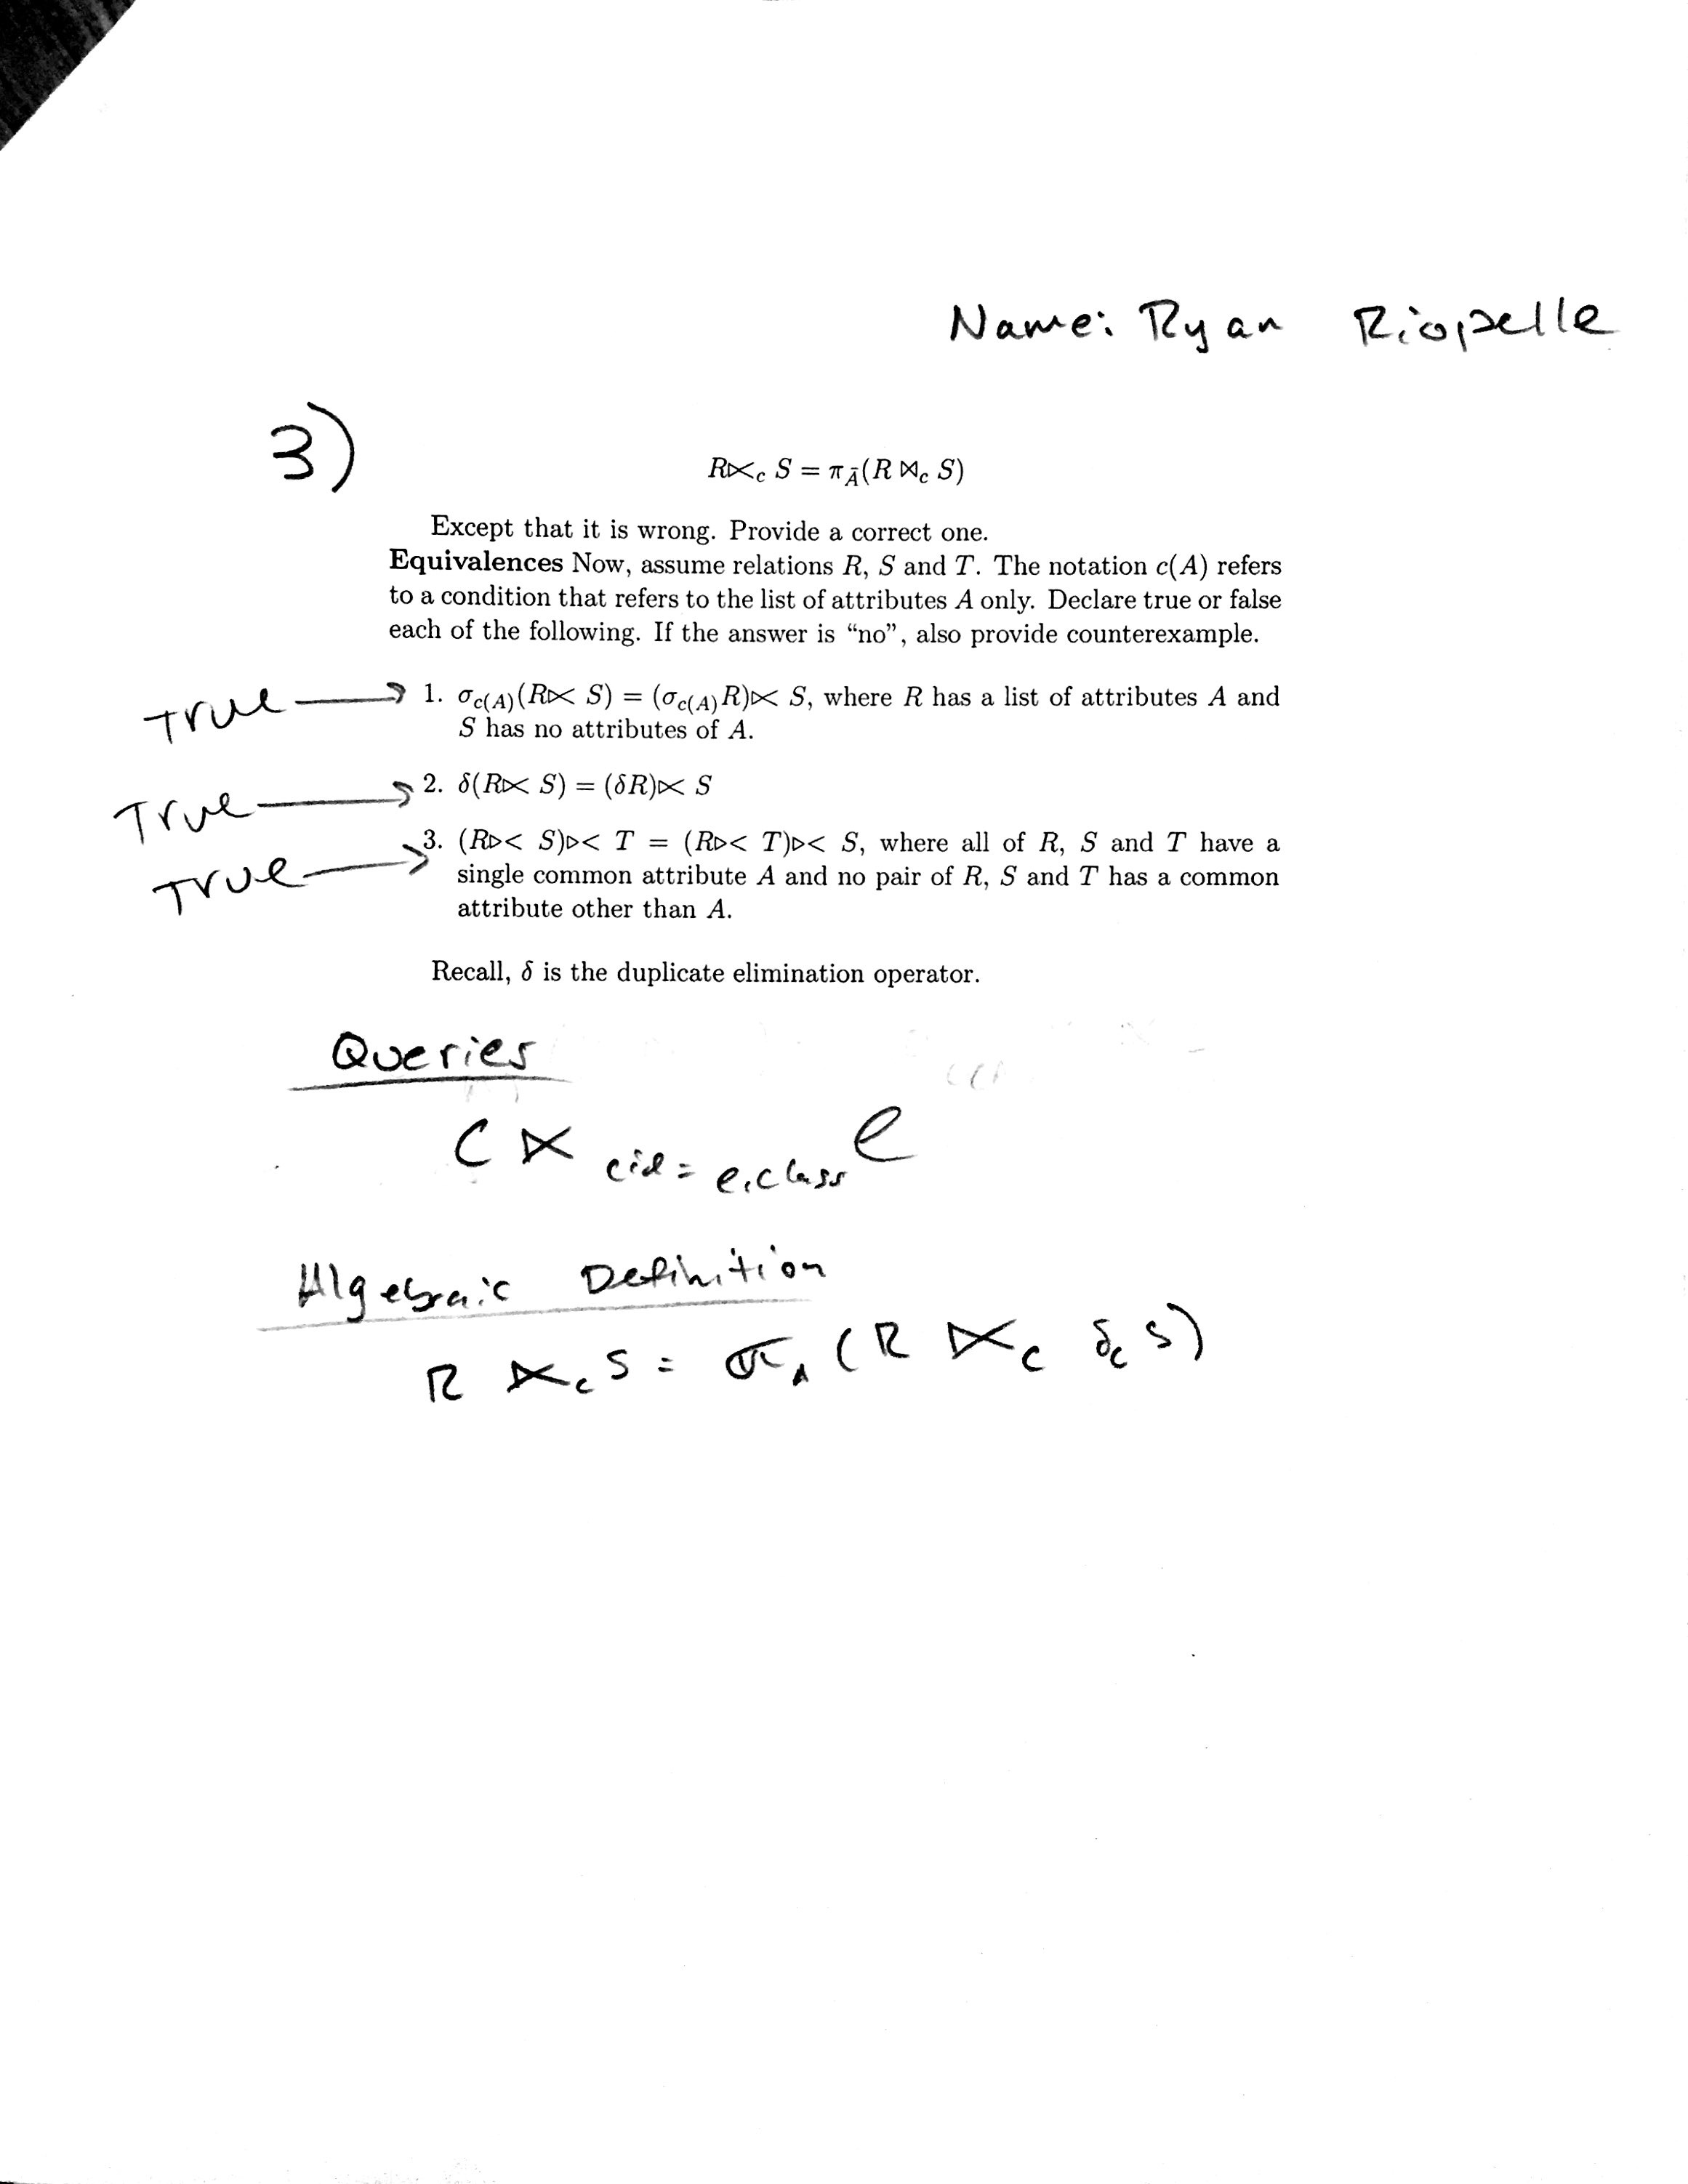 Name: Ryan Riopelle
3)
R⋉_c S = π_Ā(R ⋈_c S)
Except that it is wrong. Provide a correct one.
Equivalences Now, assume relations R, S and T. The notation c(A) refers
to a condition that refers to the list of attributes A only. Declare true or false
each of the following. If the answer is “no”, also provide counterexample.
True → 1. σ_c(A)(R⋉ S) = (σ_c(A)R)⋉ S, where R has a list of attributes A and
S has no attributes of A.
True → 2. δ(R⋉ S) = (δR)⋉ S
True → 3. (R▷< S)▷< T = (R▷< T)▷< S, where all of R, S and T have a
single common attribute A and no pair of R, S and T has a common
attribute other than A.
Recall, δ is the duplicate elimination operator.
Queries
C ⋉ cid = e.class e
Algebraic Definition
R ⋉_c S = π_A (R ⋉_c δ_c S)